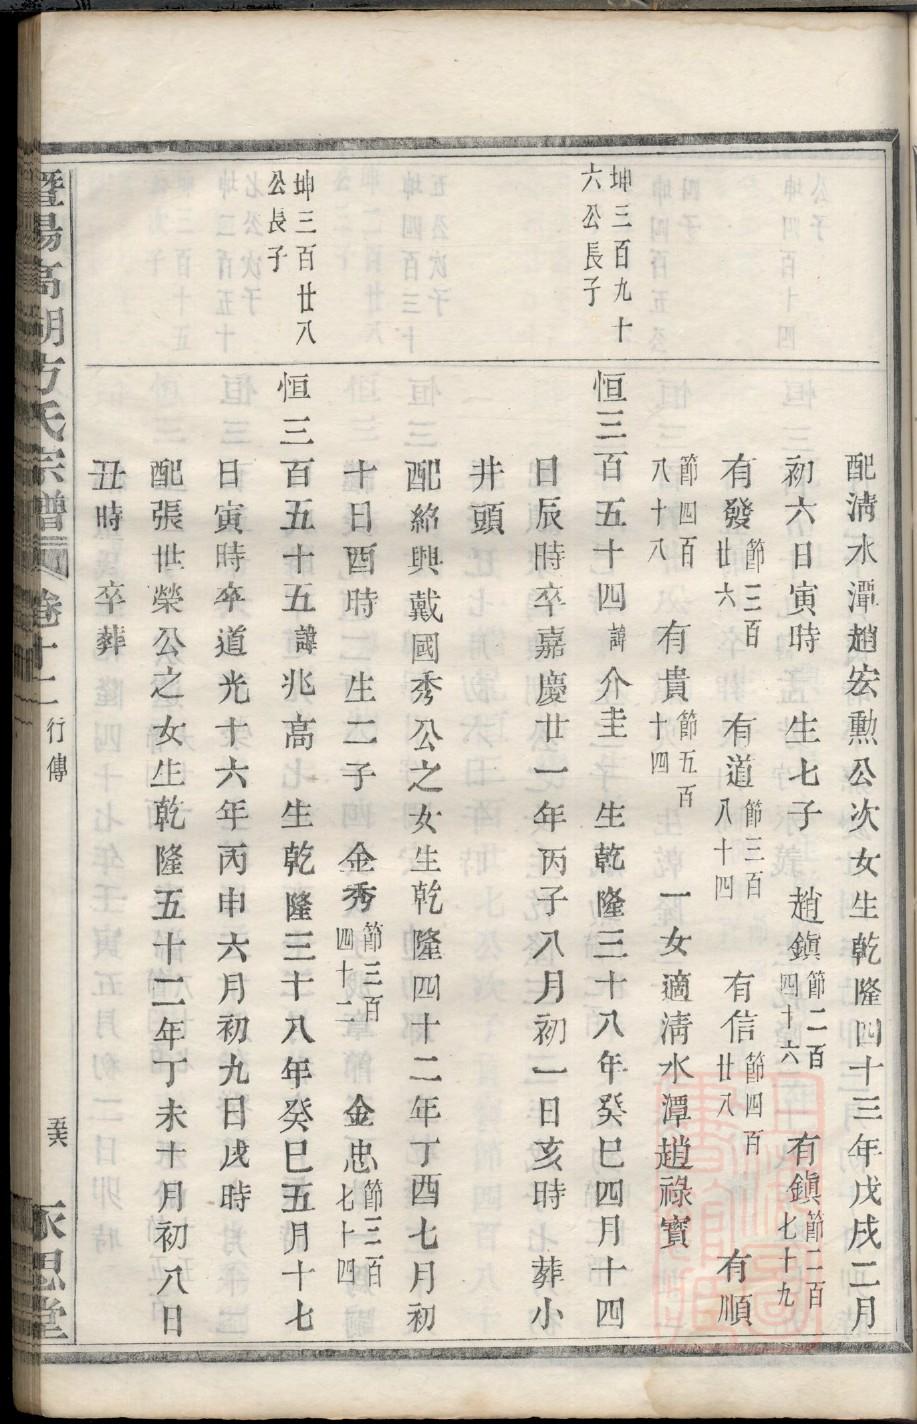 配淸水潭趙宏勳公次女生乾隆四十三年戊戌二月
初六日寅時　生七子　趙鎭節二百四十六　有鎭節二百七十九
有發節三百廿六　有道節三百八十四　有信節四百廿八　有順
節四百八十八　有貴節五百十四　一女適淸水潭趙祿寶
坤三百九十
六公長子
恒三百五十四諱介圭　生乾隆三十八年癸巳四月十四
日辰時卒嘉慶廿一年丙子八月初一日亥時　葬小
井頭
配紹興戴國秀公之女生乾隆四十二年丁酉七月初
十日酉時　生二子　金秀節三百四十二　金忠節三百七十四
坤三百廿八
公長子
恒三百五十五諱兆高　生乾隆三十八年癸巳五月十七
日寅時卒道光十六年丙申六月初九日戌時
配張世榮公之女生乾隆五十二年丁未十月初八日
丑時　卒　葬
暨陽高湖方氏宗譜　卷十二　行傳　永思堂